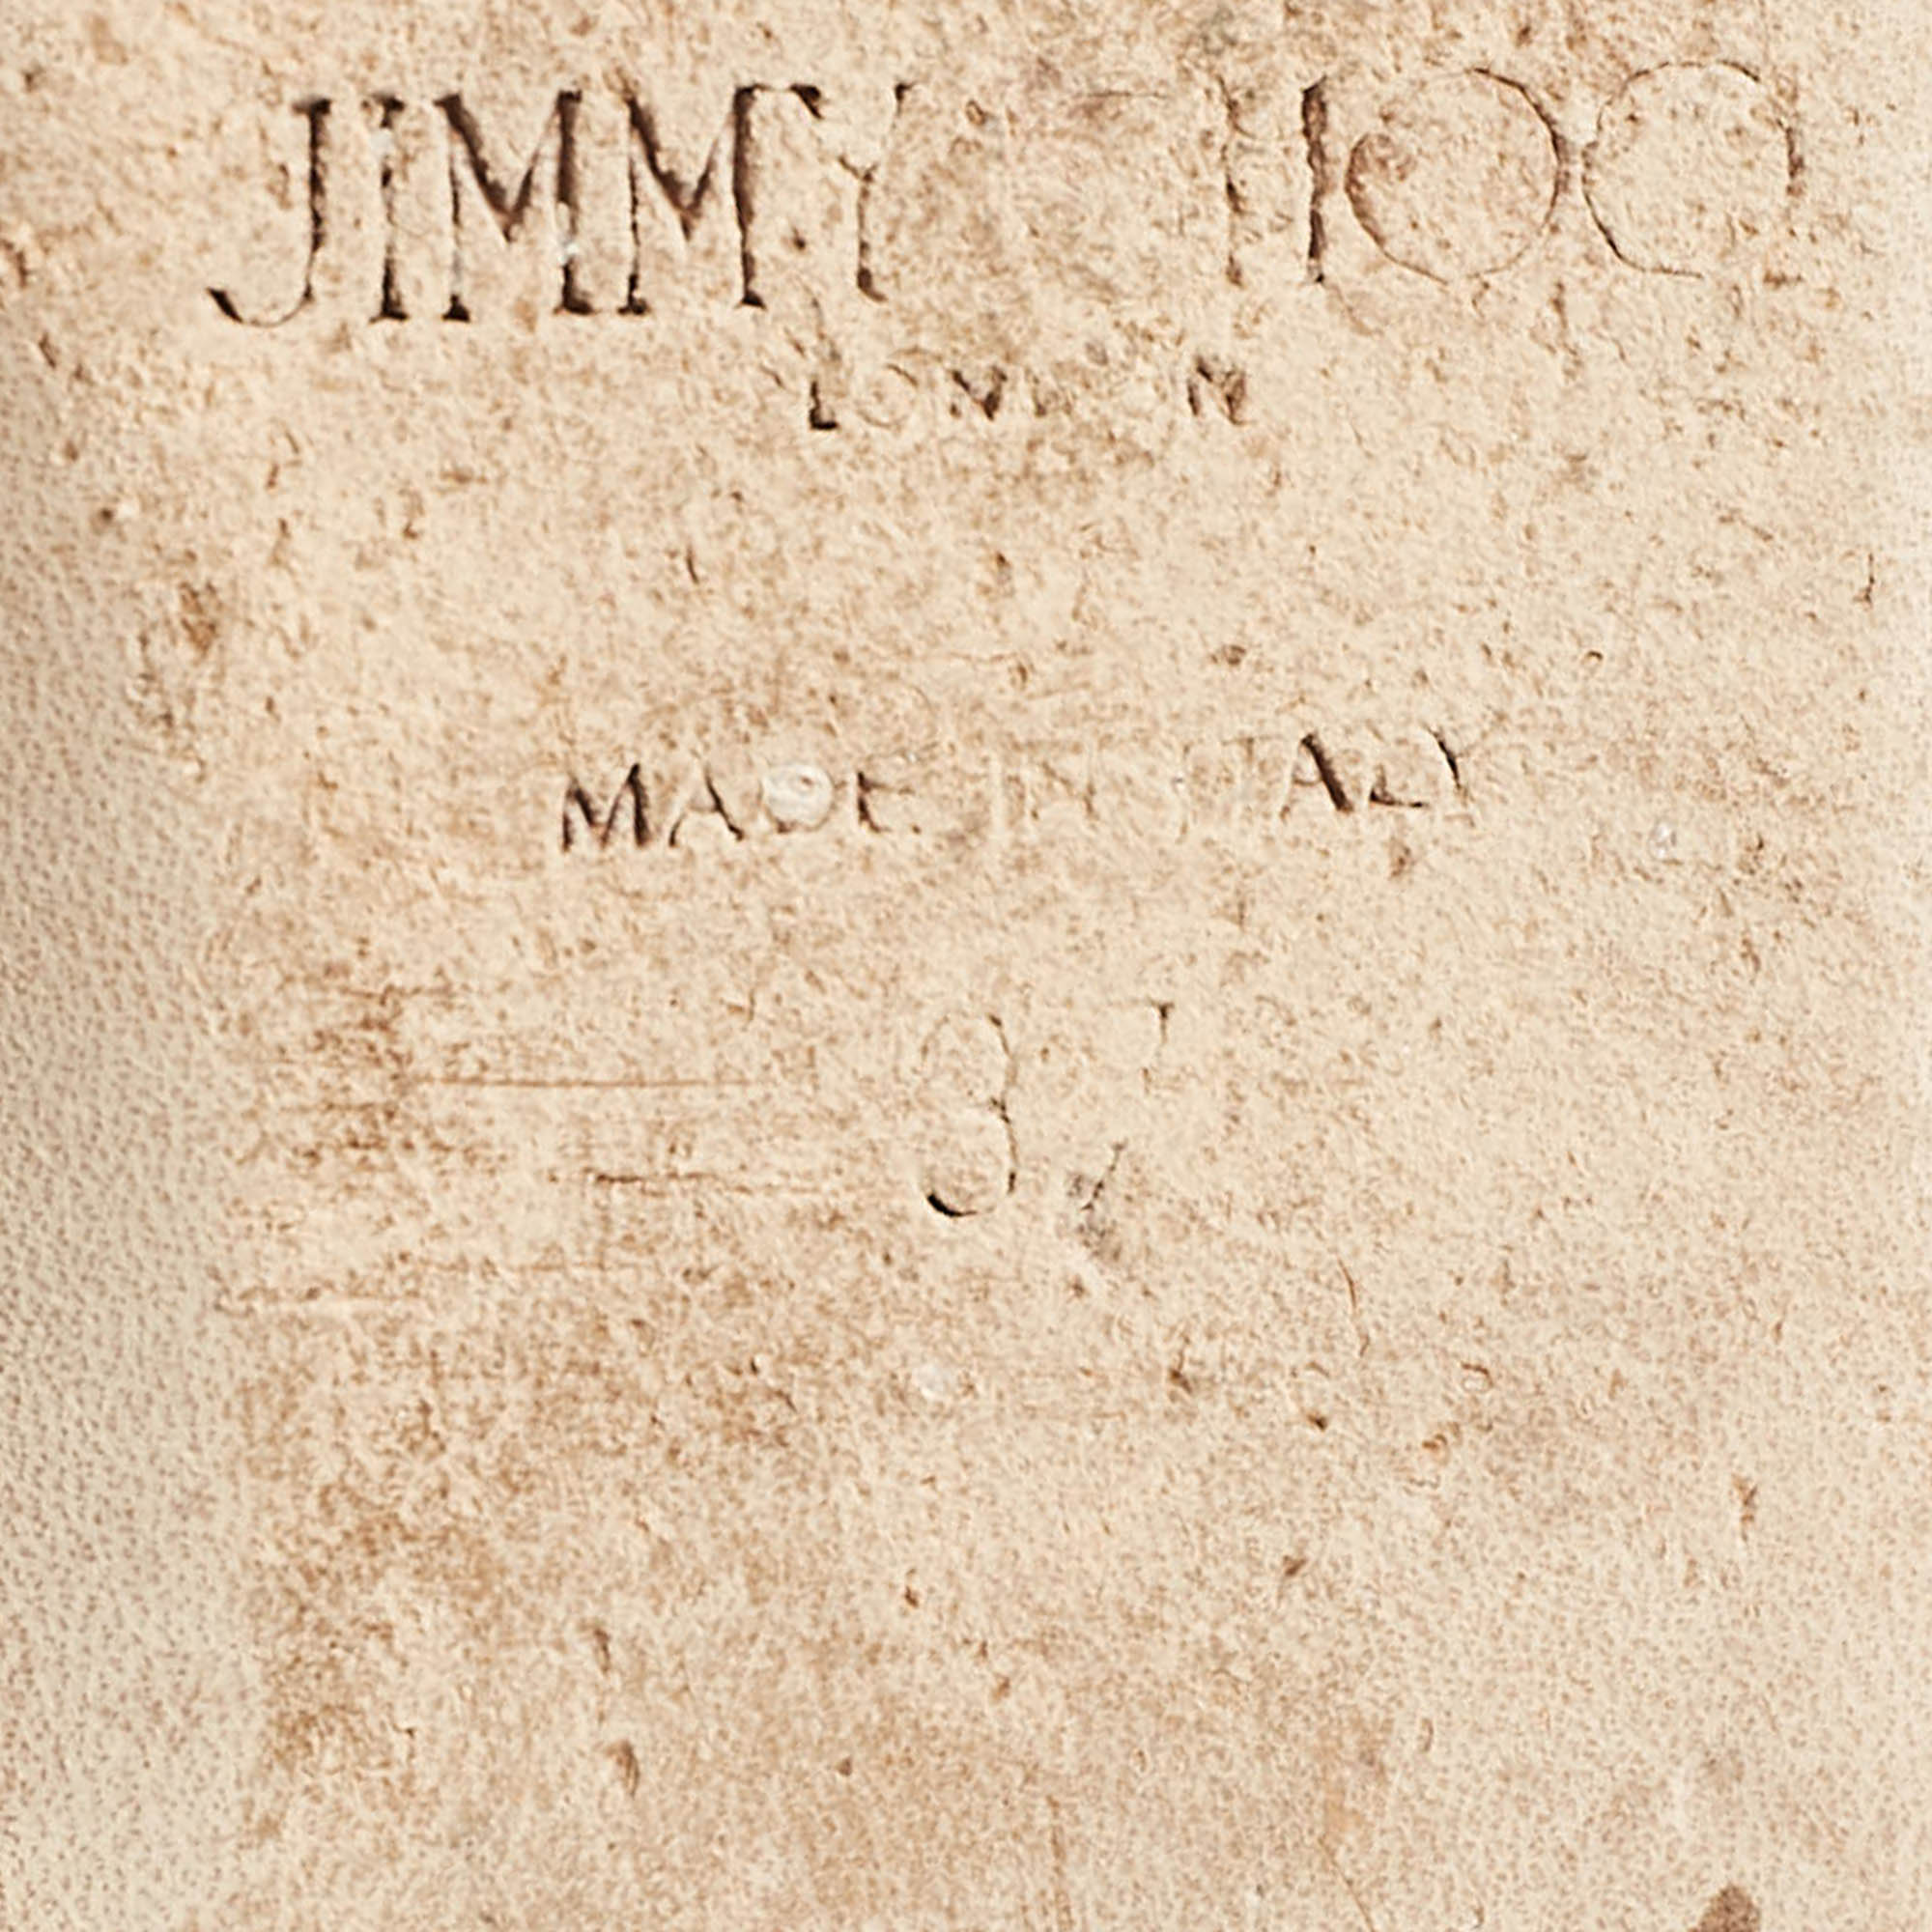 JIMMY CHOO
LONDON
MADE IN ITALY
37